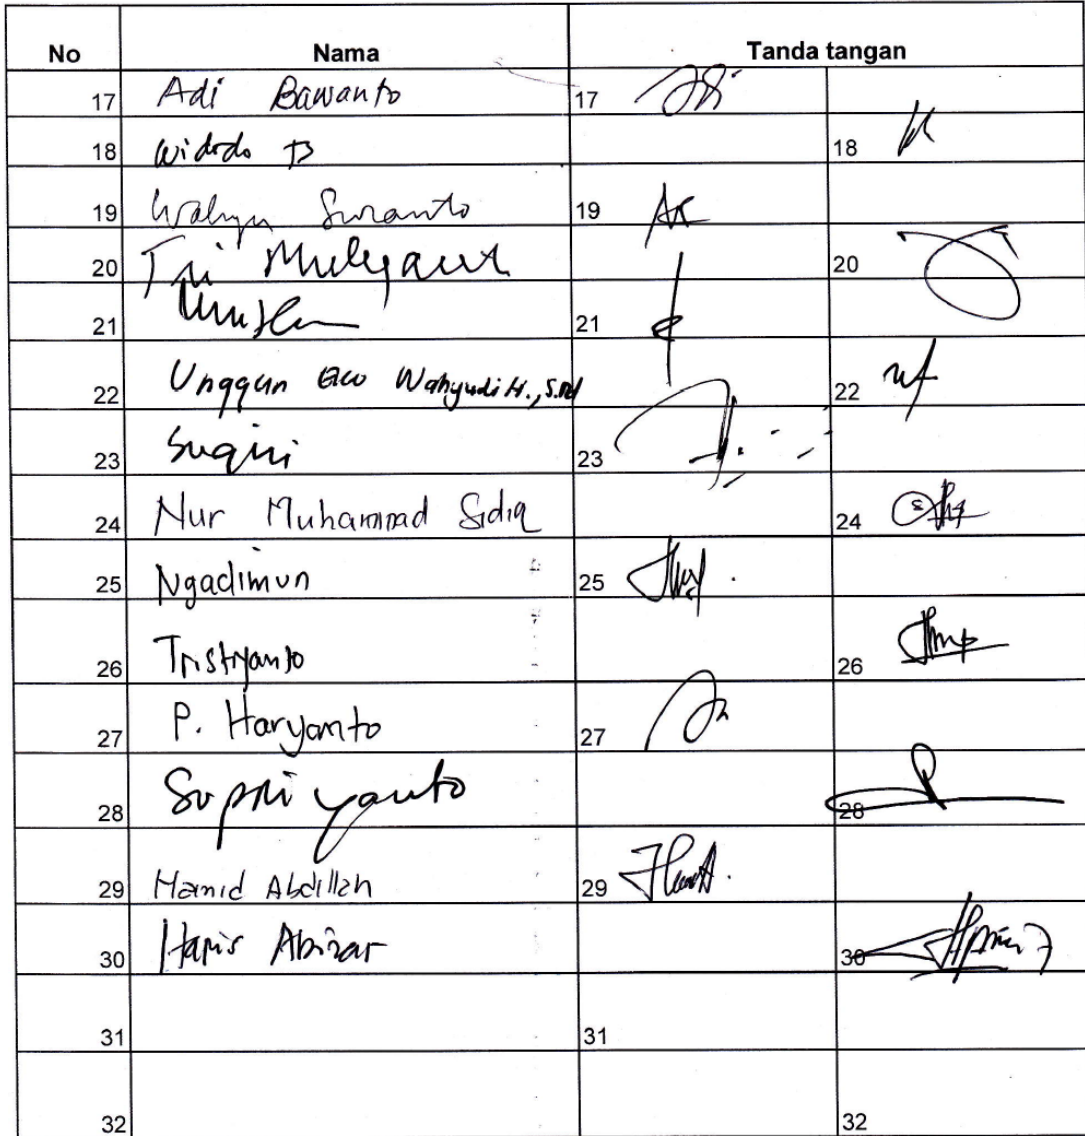 No Nama Tanda tangan
17 Adi Bawanto 17
18 Widodo B 18
19 Wahyu Suranto 19
20 Tri Mulyant 20
21 21
22 Unggun Eko Wahyudi H., S.Pd 22
23 Sugiri 23
24 Nur Muhammad Sidiq 24
25 Ngadimun 25
26 Tristiyanto 26
27 P. Haryanto 27
28 Supriyanto 28
29 Hamid Abdillah 29
30 Haris Abizar 30
31 31
32 32